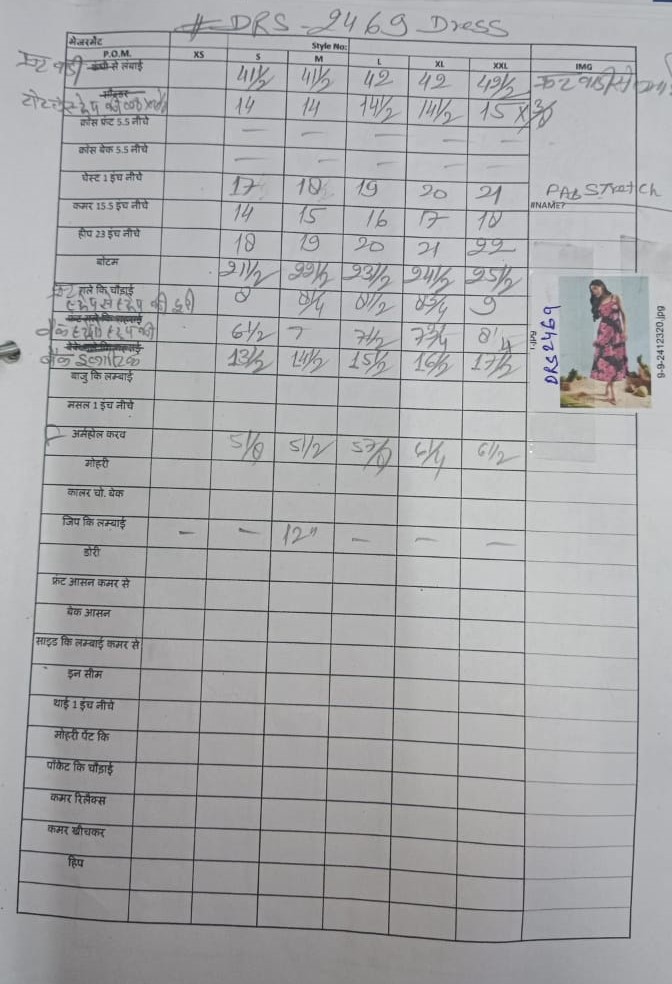 # DRS-2469 Dress
मेजरमेंट
P.O.M. XS Style No: S M L XL XXL IMG
फ्रंट बॉडी से लंबाई 41½ 41½ 42 42 42½
14 14 14½ 14½ 15 x 3/8
क्रोस फ्रंट 5.5 नीचे — — — — —
क्रोस बेक 5.5 नीचे — — — — —
चेस्ट 1 इंच नीचे 17 18 19 20 21 PAB Stretch
कमर 15.5 इंच नीचे 14 15 16 17 18 #NAME?
हीप 23 इंच नीचे 18 19 20 21 22
बोटम 21½ 22½ 23½ 24½ 25½
फ्रंट स्ट्रेप से स्ट्रेप की दूरी 8 8¼ 8½ 8¾ 9
बैक स्ट्रेप स्ट्रेप की 6½ 7 7½ 7¾ 8¼
बैक इलास्टिक 13½ 14½ 15½ 16½ 17½
बाजु कि लम्बाई
मसल 1 इंच नीचे
आर्महोल करव 5½ 5⅞ 6¼ 6½
मोहरी
कालर चो. बेक
जिप कि लम्बाई — — 12" — — —
डोरी
फ्रंट आसन कमर से
बेक आसन
साइड कि लम्बाई कमर से
इन सीम
थाई 1 इंच नीचे
मोहरी पेंट कि
पॉकेट कि चौड़ाई
कमर रिलैक्स
कमर खींचकर
हिप
DRS2469
9-9-2412320.jpg